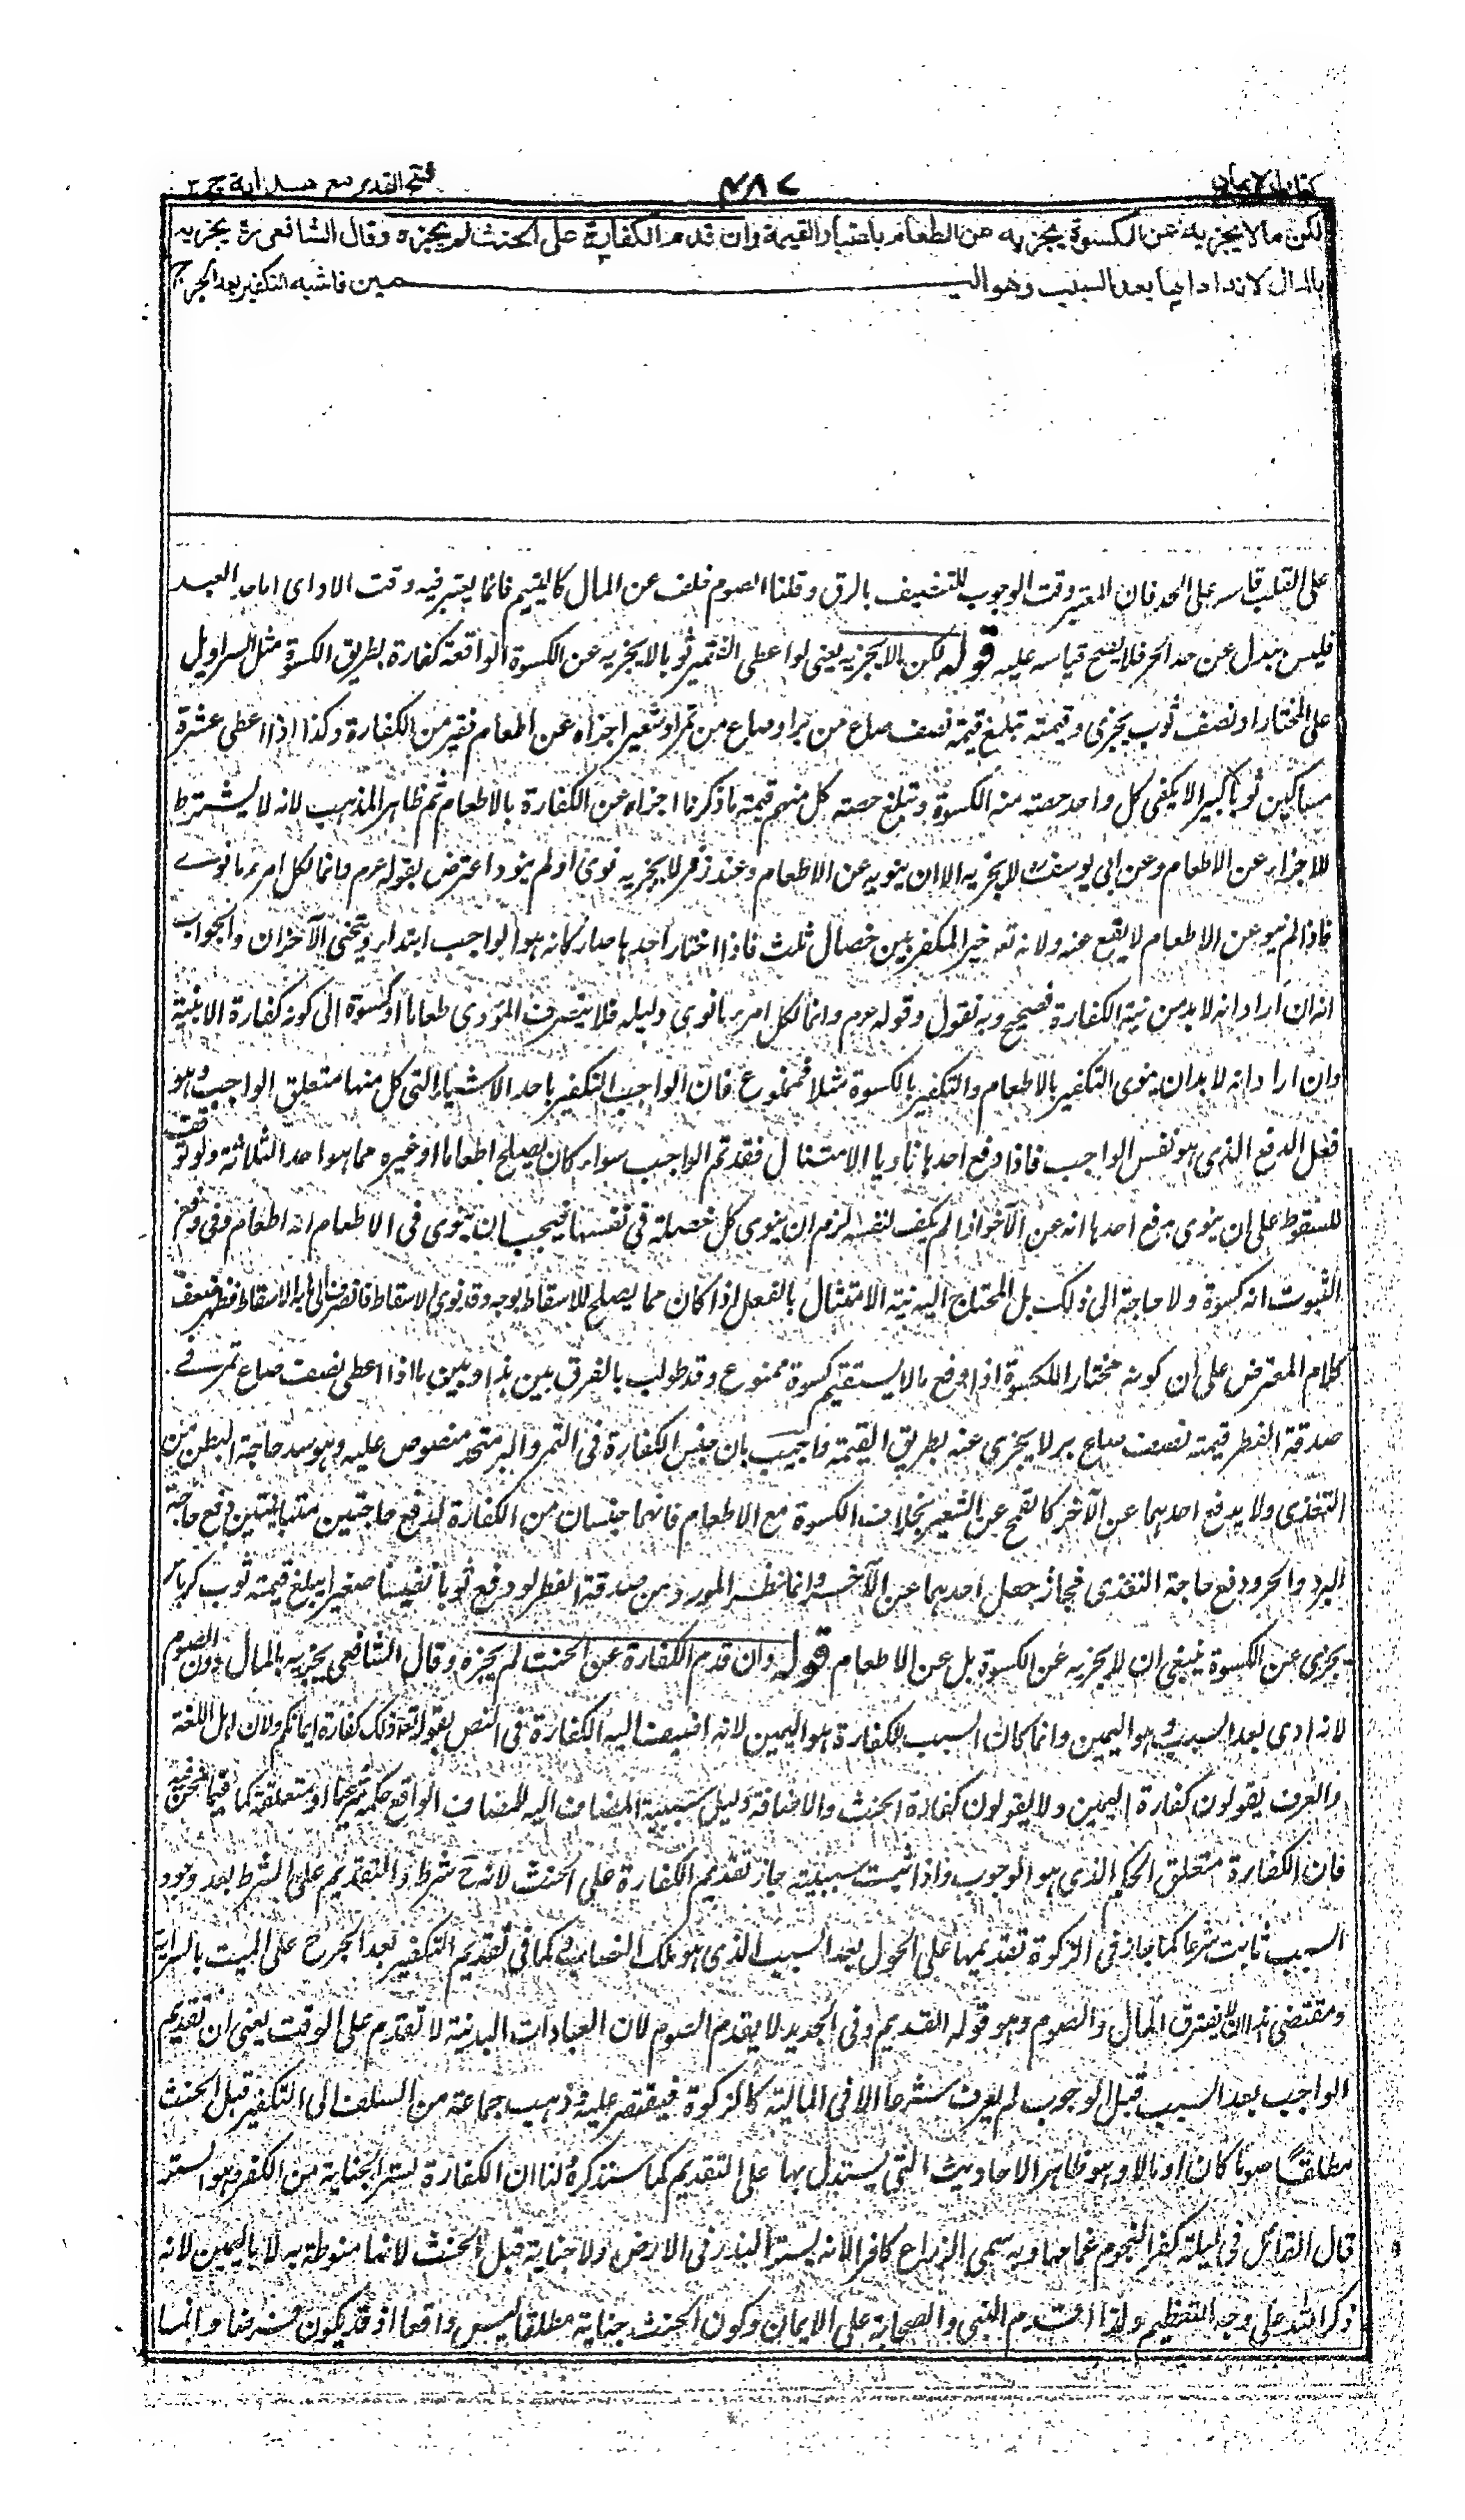 كتاب الايمان
٤٨٧
فتح القدير مع هداية ج ٢
لكن ما لا يجزيه عن الكسوة يجزيه عن الطعام باعتبار القيمة وان قدم الكفارة على الحنث لم يجزه وقال الشافعي رح يجزيه
بالمال لانه اداها بعد السبب وهو اليمين فاشبه التكفير بعد الجرح
على القلب قاسه على الحد فان المعتبر وقت الوجوب للتنصيف بالرق وقلنا الصوم خلف عن المال كالتيمم فانما يعتبر فيه وقت الاداى اما حد العبد
فليس ببدل عن حد الحر فلا يصح قياسه عليه قوله لكن ما لا يجزيه يعني لو اعطى الفقير ثوبا لا يجزيه عن الكسوة الواقعة كفارة بطريق الكسوة مثل السراويل
على المختار او نصف ثوب يجزى وقيمته تبلغ قيمة نصف صاع من بر او صاع من تمر او شعير اجزاه عن اطعام فقير من الكفارة وكذا اذا اعطى عشرة
مساكين ثوبا كبيرا لا يكفى كل واحد حصته منه الكسوة وتبلغ حصة كل منهم قيمة ما ذكرنا اجزاه عن الكفارة بالاطعام ثم ظاهر المذهب لانه لا يشترط
للاجزاء عن الاطعام وعن ابى يوسف لا يجزيه الا ان ينويه عن الاطعام وعند زفر لا يجزيه نوى او لم ينو واعترض بقوله عم وانما لكل امرء ما نوے
فاذا لم ينو عن الاطعام لا يقع عنه ولانه تعـ خير المكفر بين خصال ثلث فاذا اختار احدها صار كانه هو الواجب ابتداء وينتفى الآخران والجواب
انه ان اراد انه لا بد من نية الكفارة فصحيح وبه نقول وقوله عم وانما لكل امرء ما نوى دليله فلا ينصرف المؤدى طعاما او كسوة الى كونه كفارة الا بنية
وان اراد انه لا بد ان ينوى التكفير بالاطعام والتكفير بالكسوة مثلا فممنوع فان الواجب التكفير باحد الاشياء التى كل منها متعلق الواجب وهو
فعل الدفع الذى هو نفس الواجب فاذا دفع احدها ناويا الامتثال فقد تم الواجب سواء كان يصلح اطعاما او غيره مما هو احد الثلاثة ولو توقف
للسقوط على ان ينوى بدفع احدها انه عن الآخر اذا لم يكف لنفسه لزم ان ينوى كل خصلة فى نفسها فيجب ان ينوى فى الاطعام انه اطعام وفى دفع
الثوب انه كسوة ولا حاجة الى ذلك بل المحتاج اليه نية الامتثال بالفعل اذا كان مما يصلح للاسقاط بوجه وقد نوى الاسقاط فانصرف الى ما به الاسقاط فظهر ضعف
كلام المعترض على ان كونه مختارا للكسوة اذا دفع ما لا يستقيم كسوة ممنوع وقد طولب بالفرق بين هذا وبين ما اذا اعطى نصف صاع تمر فى
صدقة الفطر قيمته نصف صاع بر لا يجزى عنه بطريق القيمة واجيب بان جنس الكفارة فى التمر والبر متحد منصوص عليه وهو سد حاجة البطن من
التغذى ولا يدفع احدهما عن الآخر كالقمح عن الشعير بخلاف الكسوة مع الاطعام فانهما جنسان من الكفارة لدفع حاجتين متباينتين دفع حاجة
البرد والحر ودفع حاجة التغذى فجاز جعل احدهما عن الآخر وانما نظير المورد من صدقة الفطر لو دفع ثوبا نفيسا صغيرا يبلغ قيمته ثوب كرباس
يجزى عن الكسوة ينبغى ان لا يجزيه عن الكسوة بل عن الاطعام قوله وان قدم الكفارة عن الحنث لم يجزه وقال الشافعي يجزيه بالمال دون الصوم
لانه ادى بعد السبب وهو اليمين وانما كان السبب للكفارة هو اليمين لانه اضيفت اليه الكفارة فى النص بقوله تعـ ذلك كفارة ايمانكم ولان اهل اللغة
والعرف يقولون كفارة اليمين ولا يقولون كفارة الحنث والاضافة دليل سببية المضاف اليه للمضاف الواقع حكما شرعيا او متعلقه كما فيما نحن فيه
فان الكفارة متعلق الحكم الذى هو الوجوب واذا ثبت سببيته جاز تقديم الكفارة على الحنث لانه ح شرط والتقديم على الشرط بعد وجود
السبب ثابت شرعا كما جاز فى الزكوة تقديمها على الحول بعد السبب الذى هو ملك النصاب وكما فى تقديم التكفير بعد الجرح على الميت بالسراية
ومقتضى هذا ان لا يفترق المال والصوم وهو قوله القديم وفى الجديد لا يقدم الصوم لان العبادات البدنية لا تقدم على الوقت يعنى ان تقديم
الواجب بعد السبب قبل الوجوب لم يعرف شرعا الا فى المالية كالزكوة فيقتصر عليه وذهب جماعة من السلف الى التكفير قبل الحنث
مطلقا صوما كان او مالا وهو ظاهر الاحاديث التى يستدل بها على التقديم كما سنذكره لنا ان الكفارة لستر الجناية من الكفر وهو الستر
قال القائل فى ليلة كفر النجوم غمامها وبه سمى الزراع كافرا لانه يستر البذر فى الارض ولا جناية قبل الحنث لانها منوطة به لا باليمين لانه
ذكر الله على وجه التعظيم ولذا اقدم النبى والصحابة على الايمان وكون الحنث جناية مطلقا ليس واقعا اذ قد يكون فرضا وانما